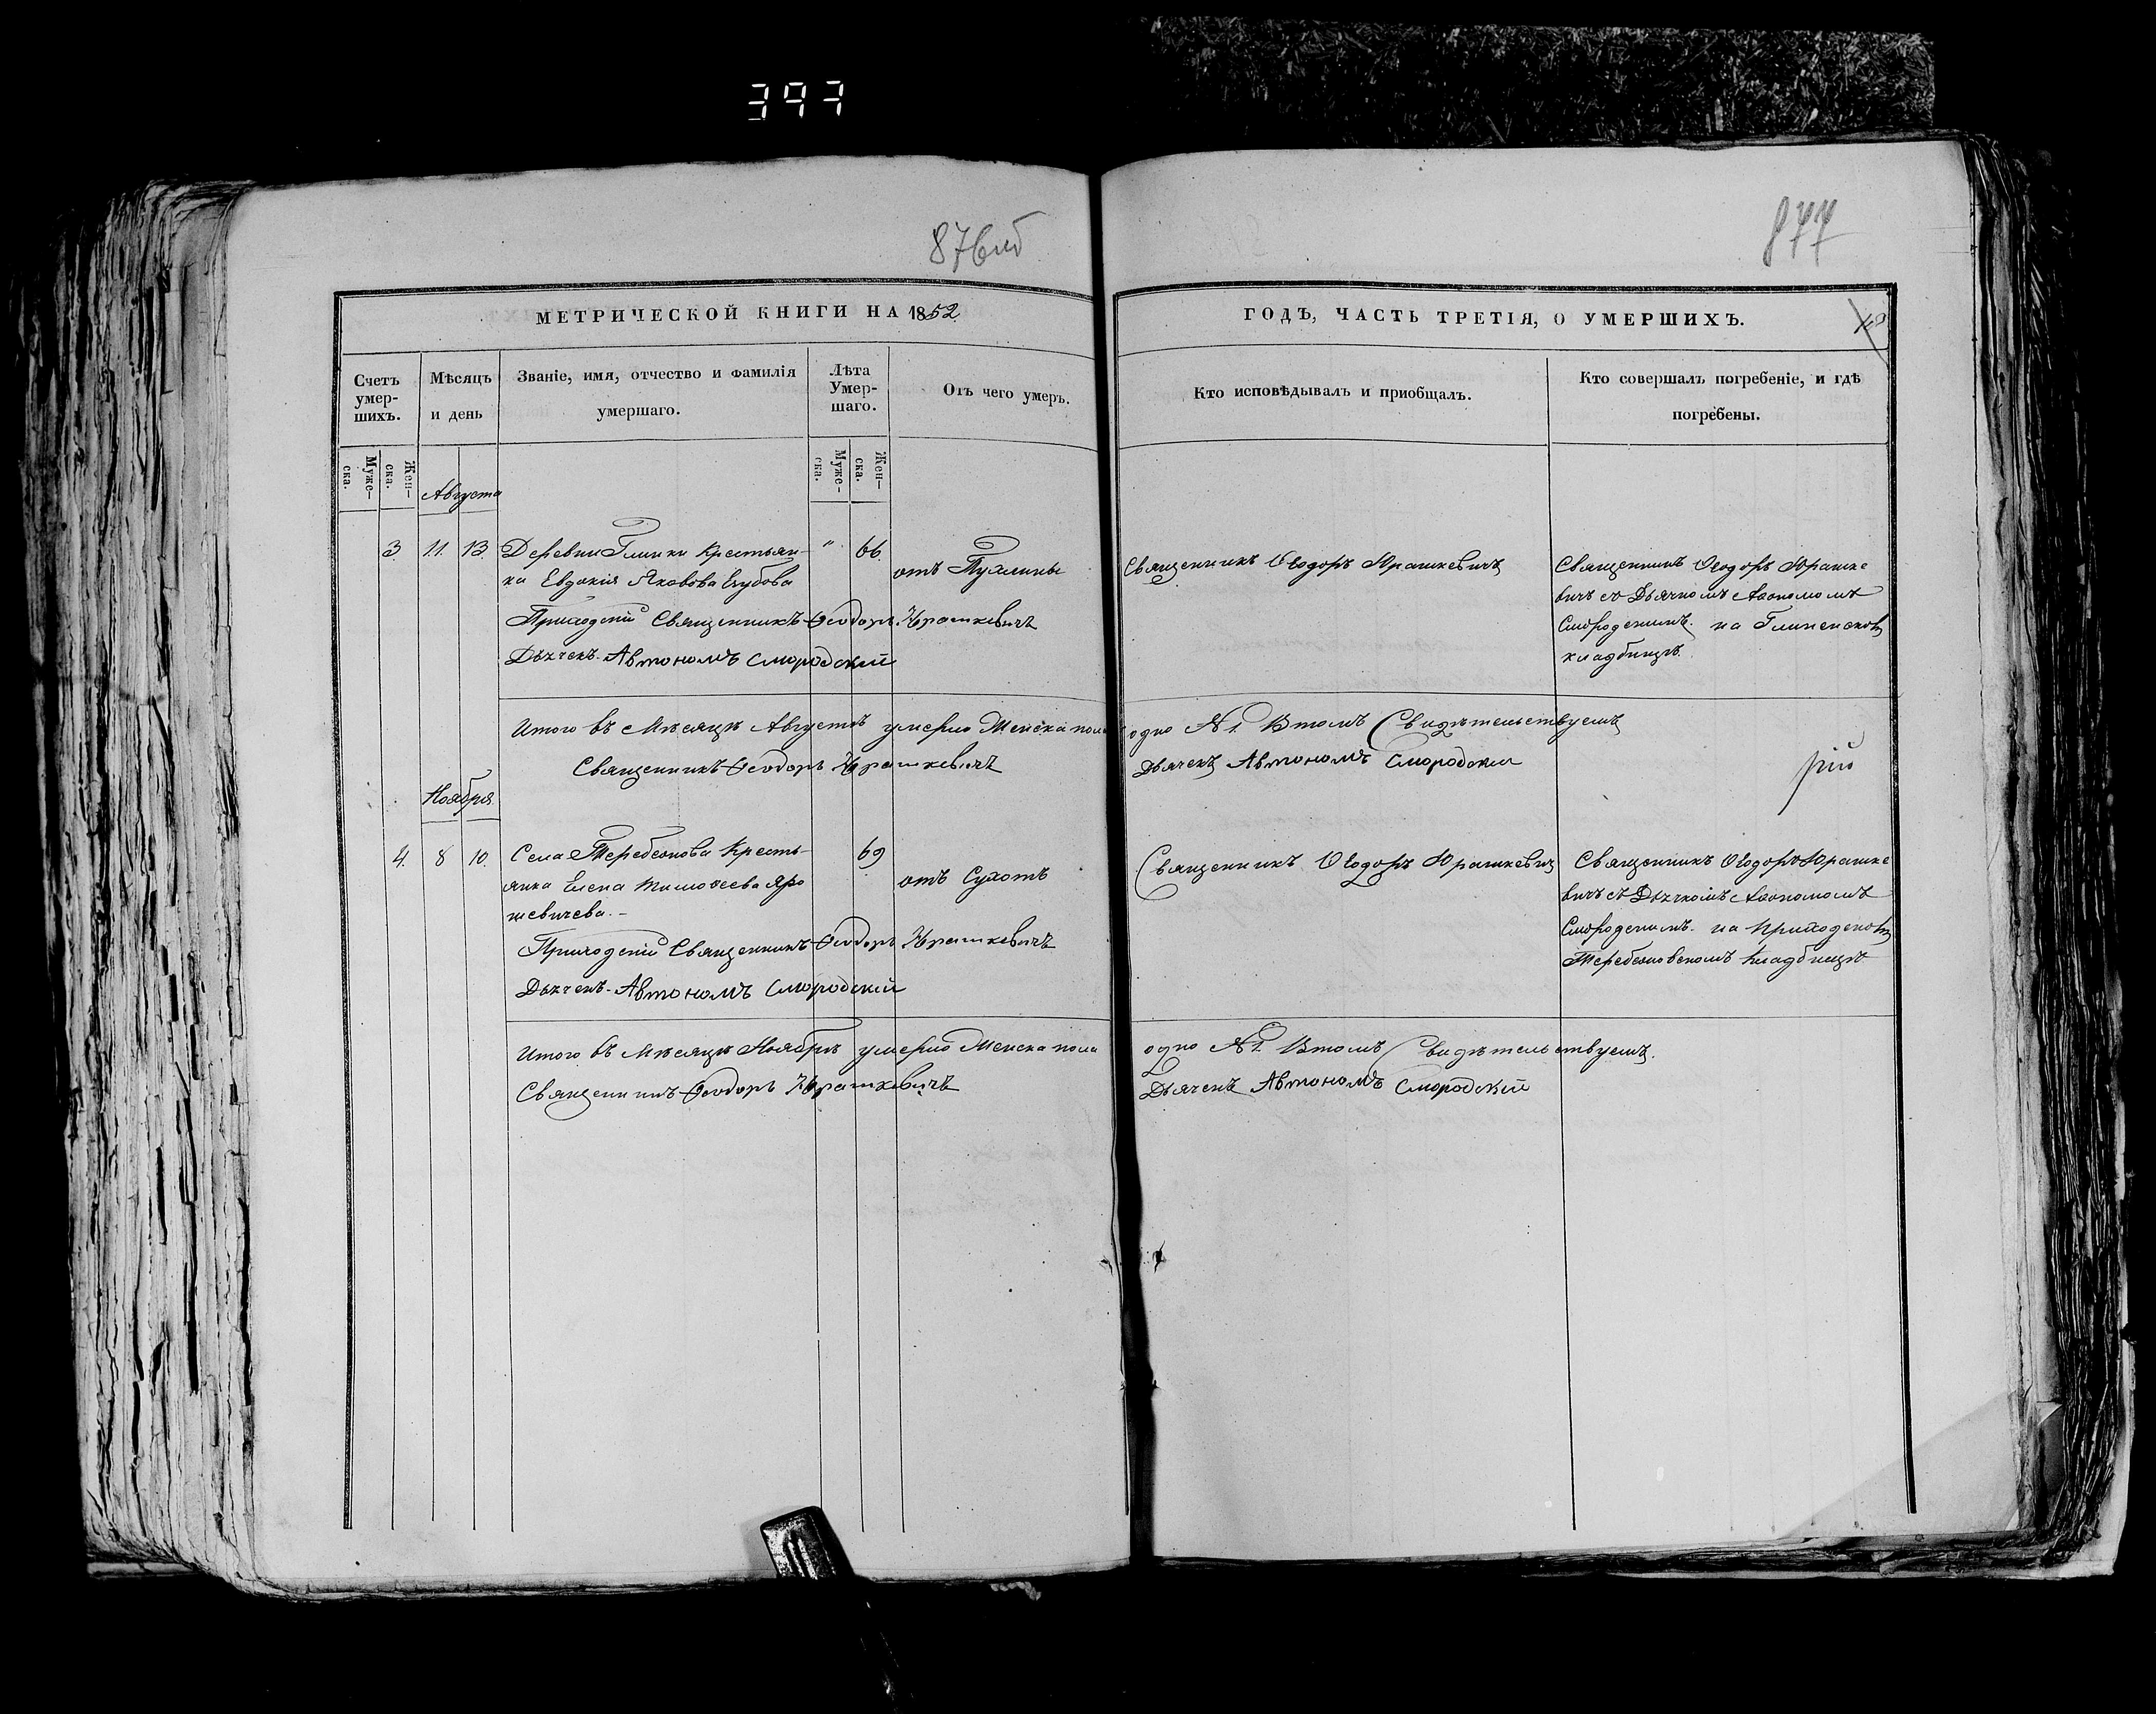 397
876 об
877
МЕТРИЧЕСКОЙ КНИГИ НА 1852
ГОДЪ, ЧАСТЬ ТРЕТІЯ, О УМЕРШИХЪ.
Счетъ умер-шихъ.
Мѣсяцъ и день
Званіе, имя, отчество и фамилія
умершаго.
Лѣта Умер-шаго.
Отъ чего умеръ.
Кто исповѣдывалъ и пріобщалъ.
Кто совершалъ погребеніе, и гдѣ
погребены.
Муже-ска.
Жен-ска.
Муже-ска.
Жен-ска.
Августа
3 11. 13. Деревни Глинки Крестьян-
ка Евдокія Яковова
" 66
отъ Пухлины
Приходскій Священникъ Ѳеодоръ Юрашкевичъ
Дьячекъ Автономъ Смородскій
Священникъ Ѳеодоръ Юрашкевичъ
Священникъ Ѳеодоръ Юрашке
вичъ съ Дьячкомъ Автономомъ
Смородскимъ. на Глинскомъ
кладбищѣ.
Итого въ Мѣсяцѣ Августѣ умерло Женска пола
одно № 1. Втомъ Свидѣтельствуемъ
Священникъ Ѳеодоръ Юрашкевичъ
Дьячекъ Автономъ Смородскій
Ноября
4. 8 10. Села Теребежова Кресть-
янка Елена Тимоѳеева Яро
шевичева. -
69
отъ Сухотъ
Приходскій Священникъ Ѳеодоръ Юрашкевичъ
Дьячекъ Автономъ Смородскій
Священникъ Ѳеодоръ Юрашкевичъ
Священникъ Ѳеодоръ Юрашке
вичъ съ Дьячкомъ Автономомъ
Смородскимъ. на Приходскомъ
Теребежовскомъ кладбищѣ
Итого въ Мѣсяцѣ Ноябрѣ умерло Женска пола
одно № 1. Втомъ Свидѣтельствуемъ.
Священникъ Ѳеодоръ Юрашкевичъ
Дьячекъ Автономъ Смородскій